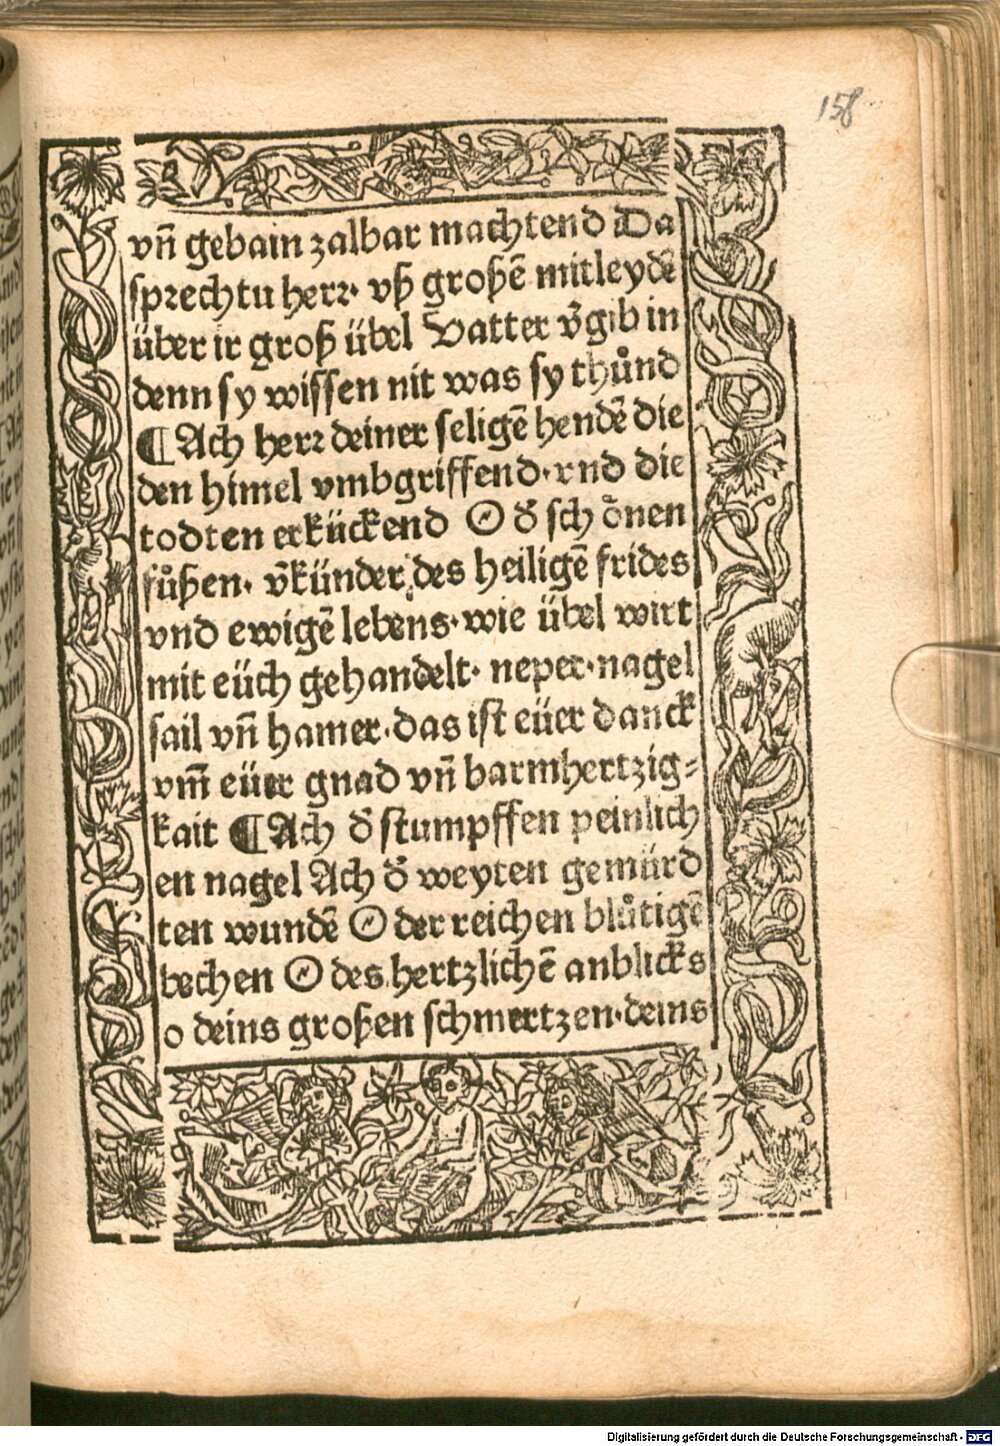 158
vn̄ gebain zalbar machtend Da
sprechtu herr· vß großē mitleydē
über ir groß übel Vatter v̄gib in
denn sy wissen nit was sy thůnd
¶Ach herr deiner seligē hendē die
den himel vmbgriffend·vnd die
todten erkückend O d̄ sch ōnen
fůßen· v̄künder des heiligē frides
vnd ewigē lebens·wie übel wirt
mit eüch gehandelt· neper·nagel
sail vn̄ hamer·das ist eüer danck
vm̄ eüer gnad vn̄ barmhertzig⸗
kait ¶Ach d̄ stumpffen peinlich
en nagel Ach d̄ weyten gemürd
ten wundē O der reichen blůtigē
bechen O des hertzlichē anblicks
o deins großen schmertzen·deins
Digitalisierung gefördert durch die Deutsche Forschungsgemeinschaft - DFG